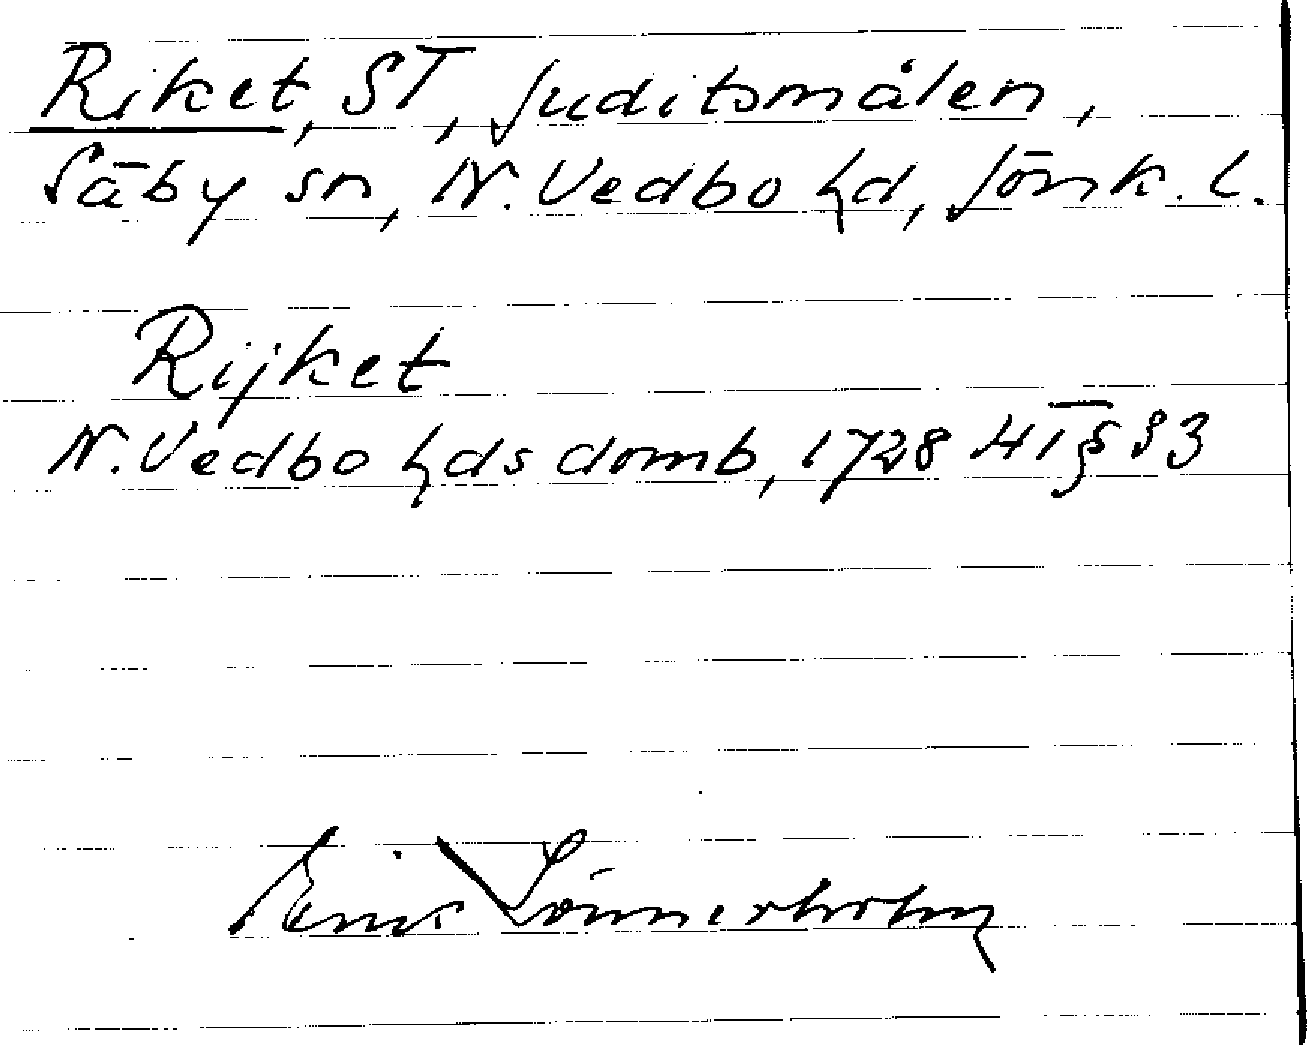 Riket, ST, Juditsmålen,
Säby sn, N. Vedbo hd, Jönk. l.
Rijket
N. Vedbo hds domb, 1728 HT § 93
Erik Lönnerholm